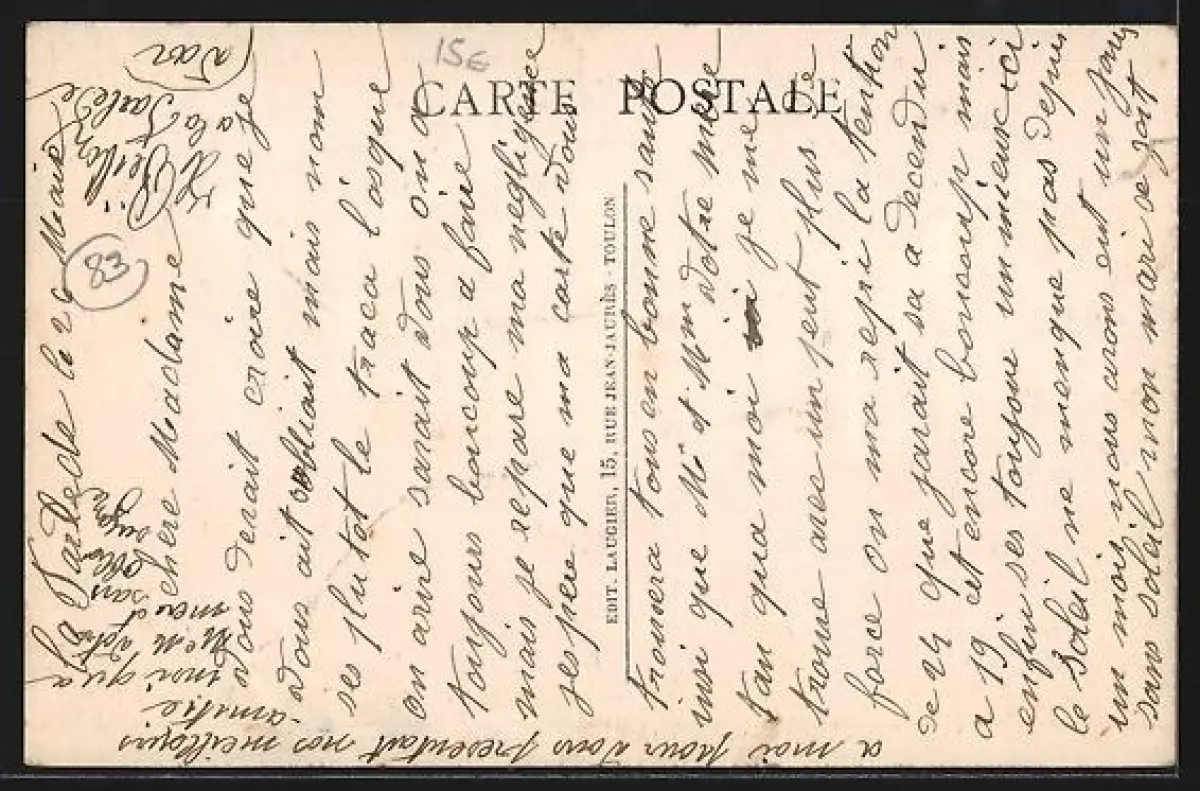 15€
CARTE POSTALE
83
EDIT. LAUGIER, 15, RUE JEAN-JAURÈS - TOULON
La Farlede le 26
chère Madame
vous devait croire que je
vous ait oubliait mais non
ses plutot le traca losque
on arive sarait vous on a
toujours baucoup a faire
mais je repare ma negligence
jespère que ma carte vous
trouvera tous en bonne santé
insi que Mr et Mme votre mère
tan qua moi je me
trouve avec un peut plus de
force on ma repri la tention
de 24 que jarait sa a decendu
a 19 cet encore boucoup mais
enfin ses toujour un mieux ici
le soleil ne manque pas depuis
un mois nous avons eut un jour
sans soleil mon mari ce joit
a moi pour vous presentait nos meilleurs
amitie